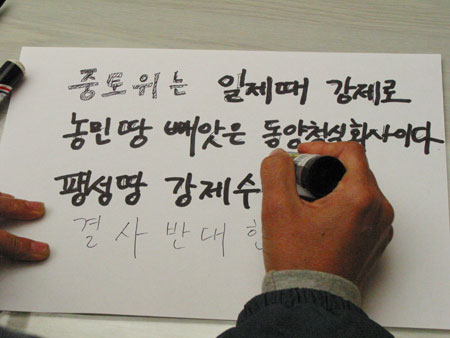 중토위는 일제때 강제로
농민땅 빼앗은 동양척식회사이다
팽성땅 강제수
결사반대